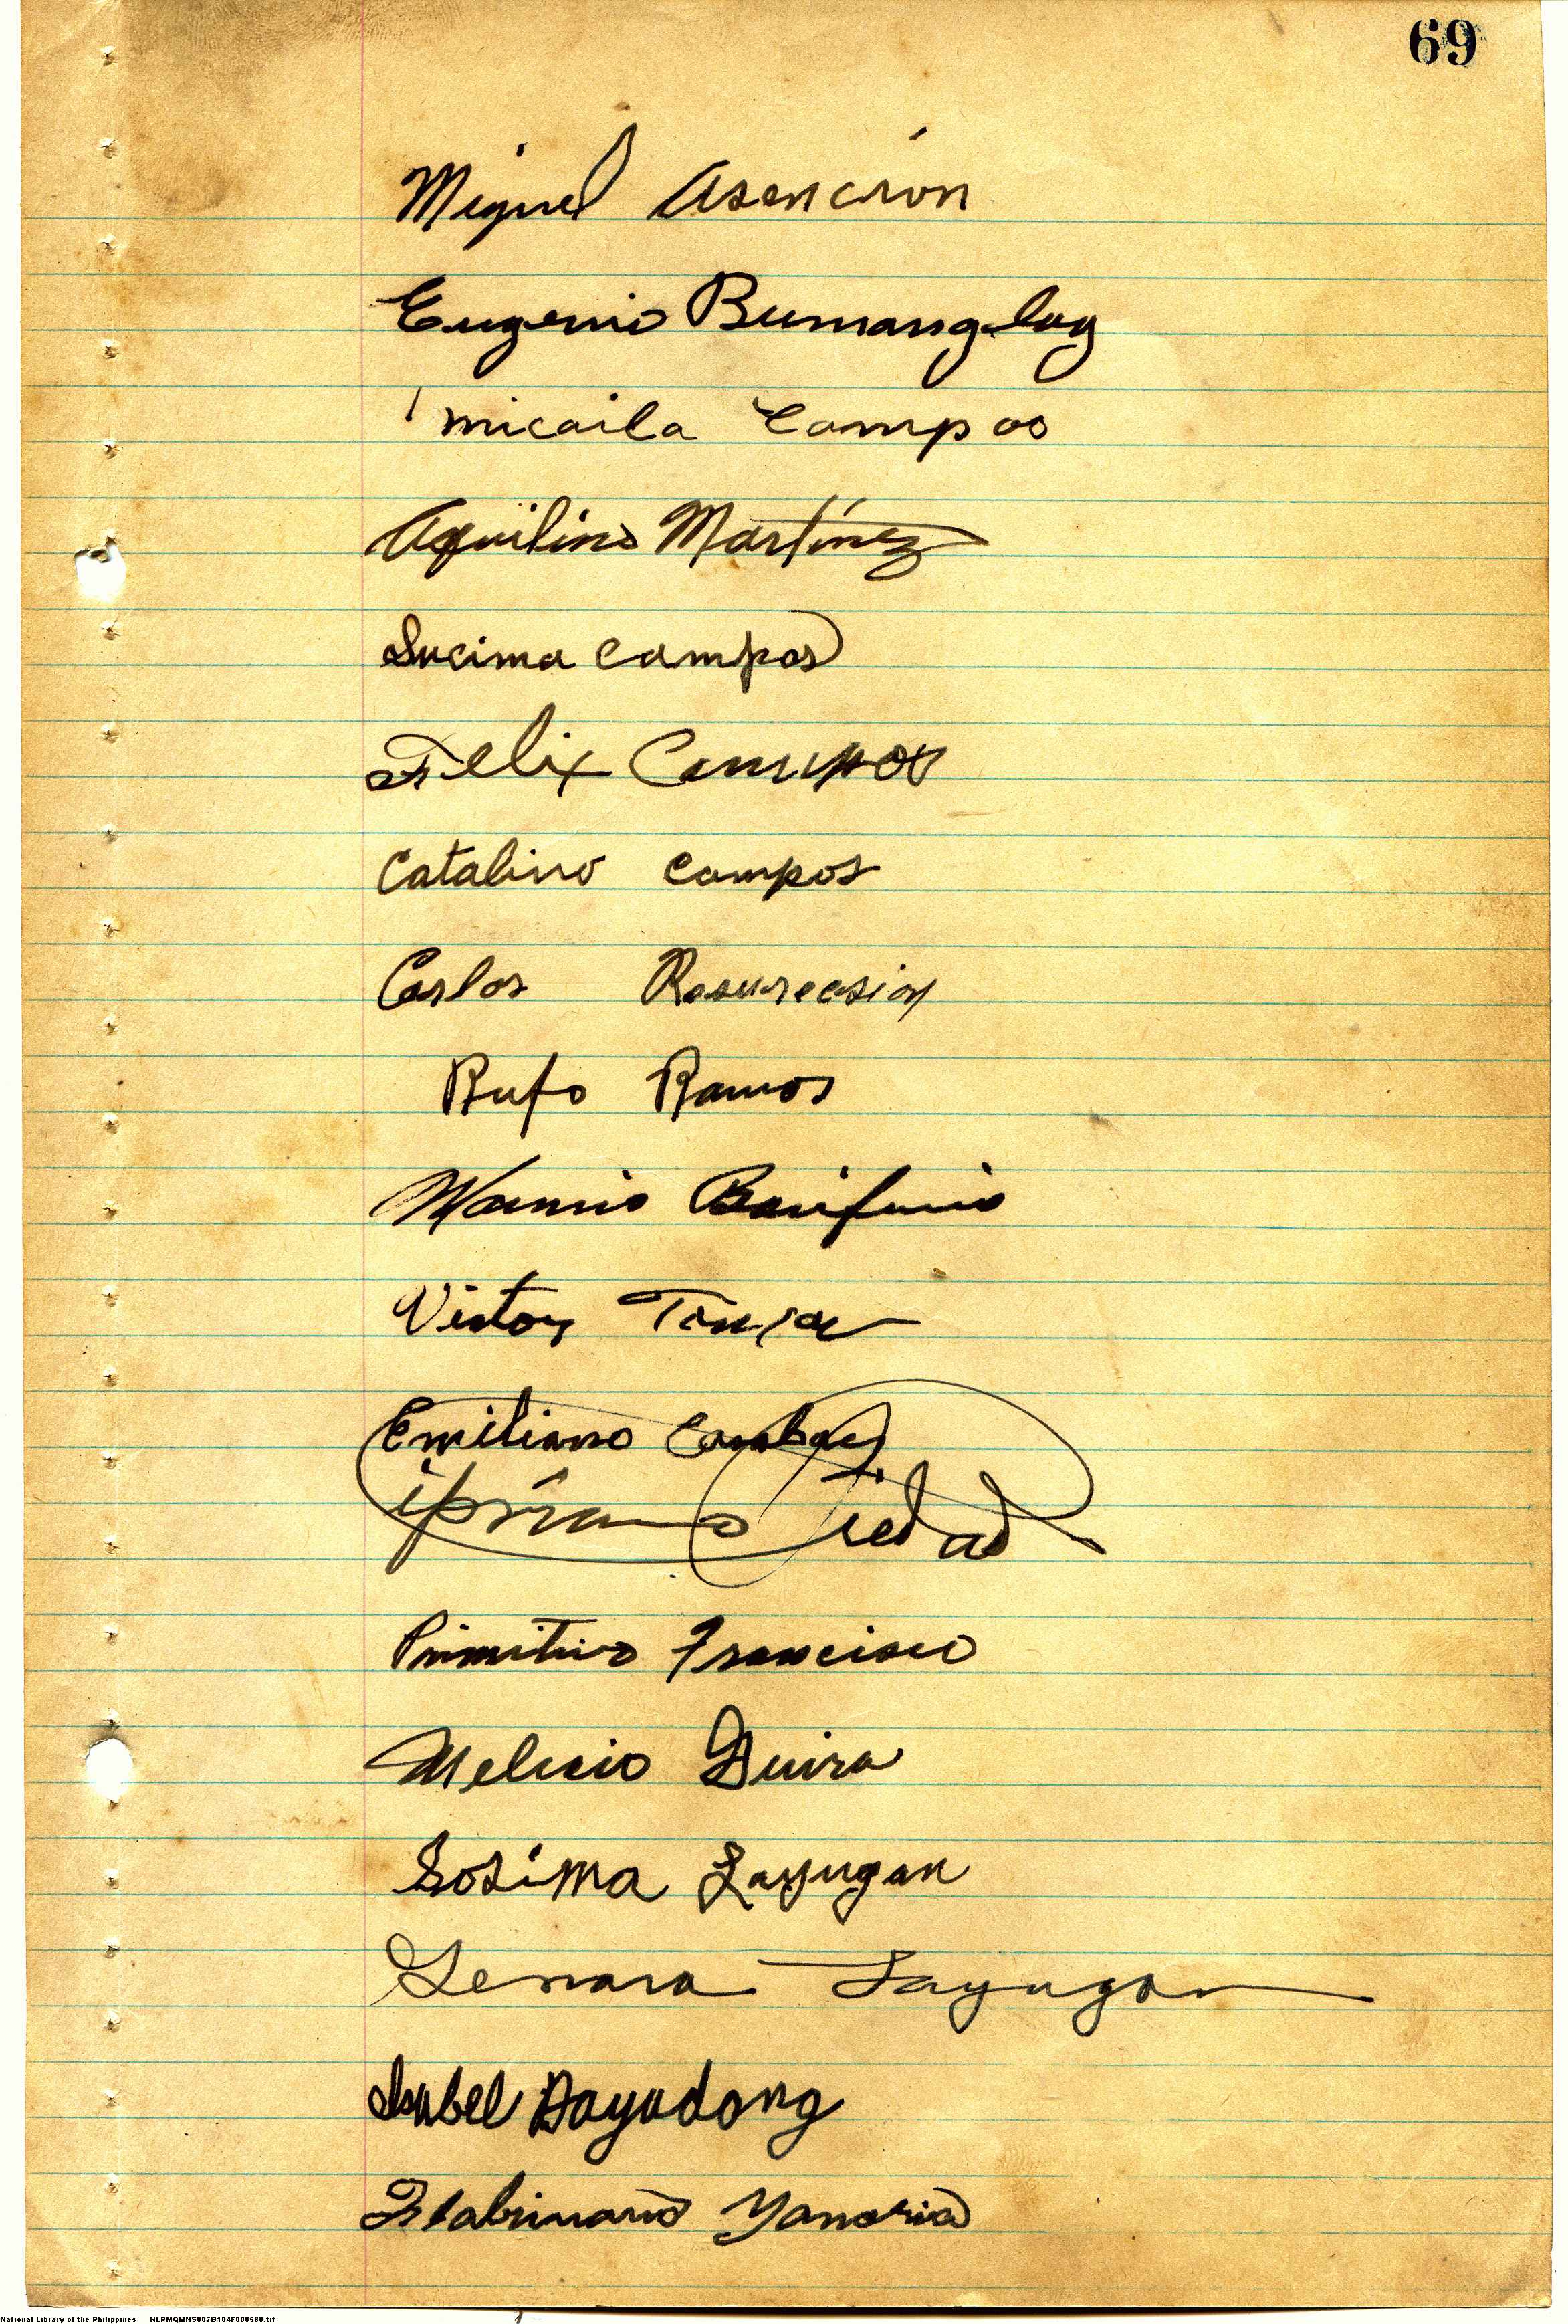 69
Miguel Asencion
Eugenio Bumanglag
Micaila Campos
Aquilino Martínez
Sucima Campos
Felix Campos
Catalino Campos
Carlos Resurecsion
Rufo Ramos
Bonifacio
Victor
Emiliano
Cipriano Piedad
Primitivo Francisco
Melecio Guira
Sosima Layugan
Genara Layugan
Isabel Dayadong
Yanoria
National Library of the Philippines NLPMQMNS007B104F000580.tif